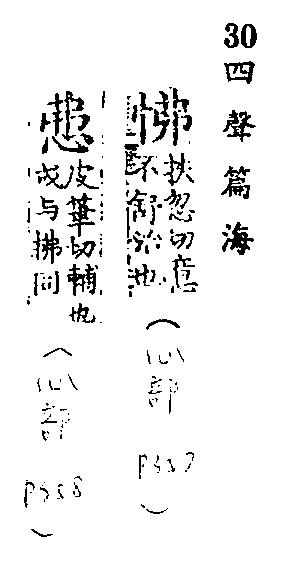 30
四聲篇海
怫
扶忽切意
不舒治也
(心部
P587
)
𢘍
皮筆切輔也
或与拂同
(心部
P588
)